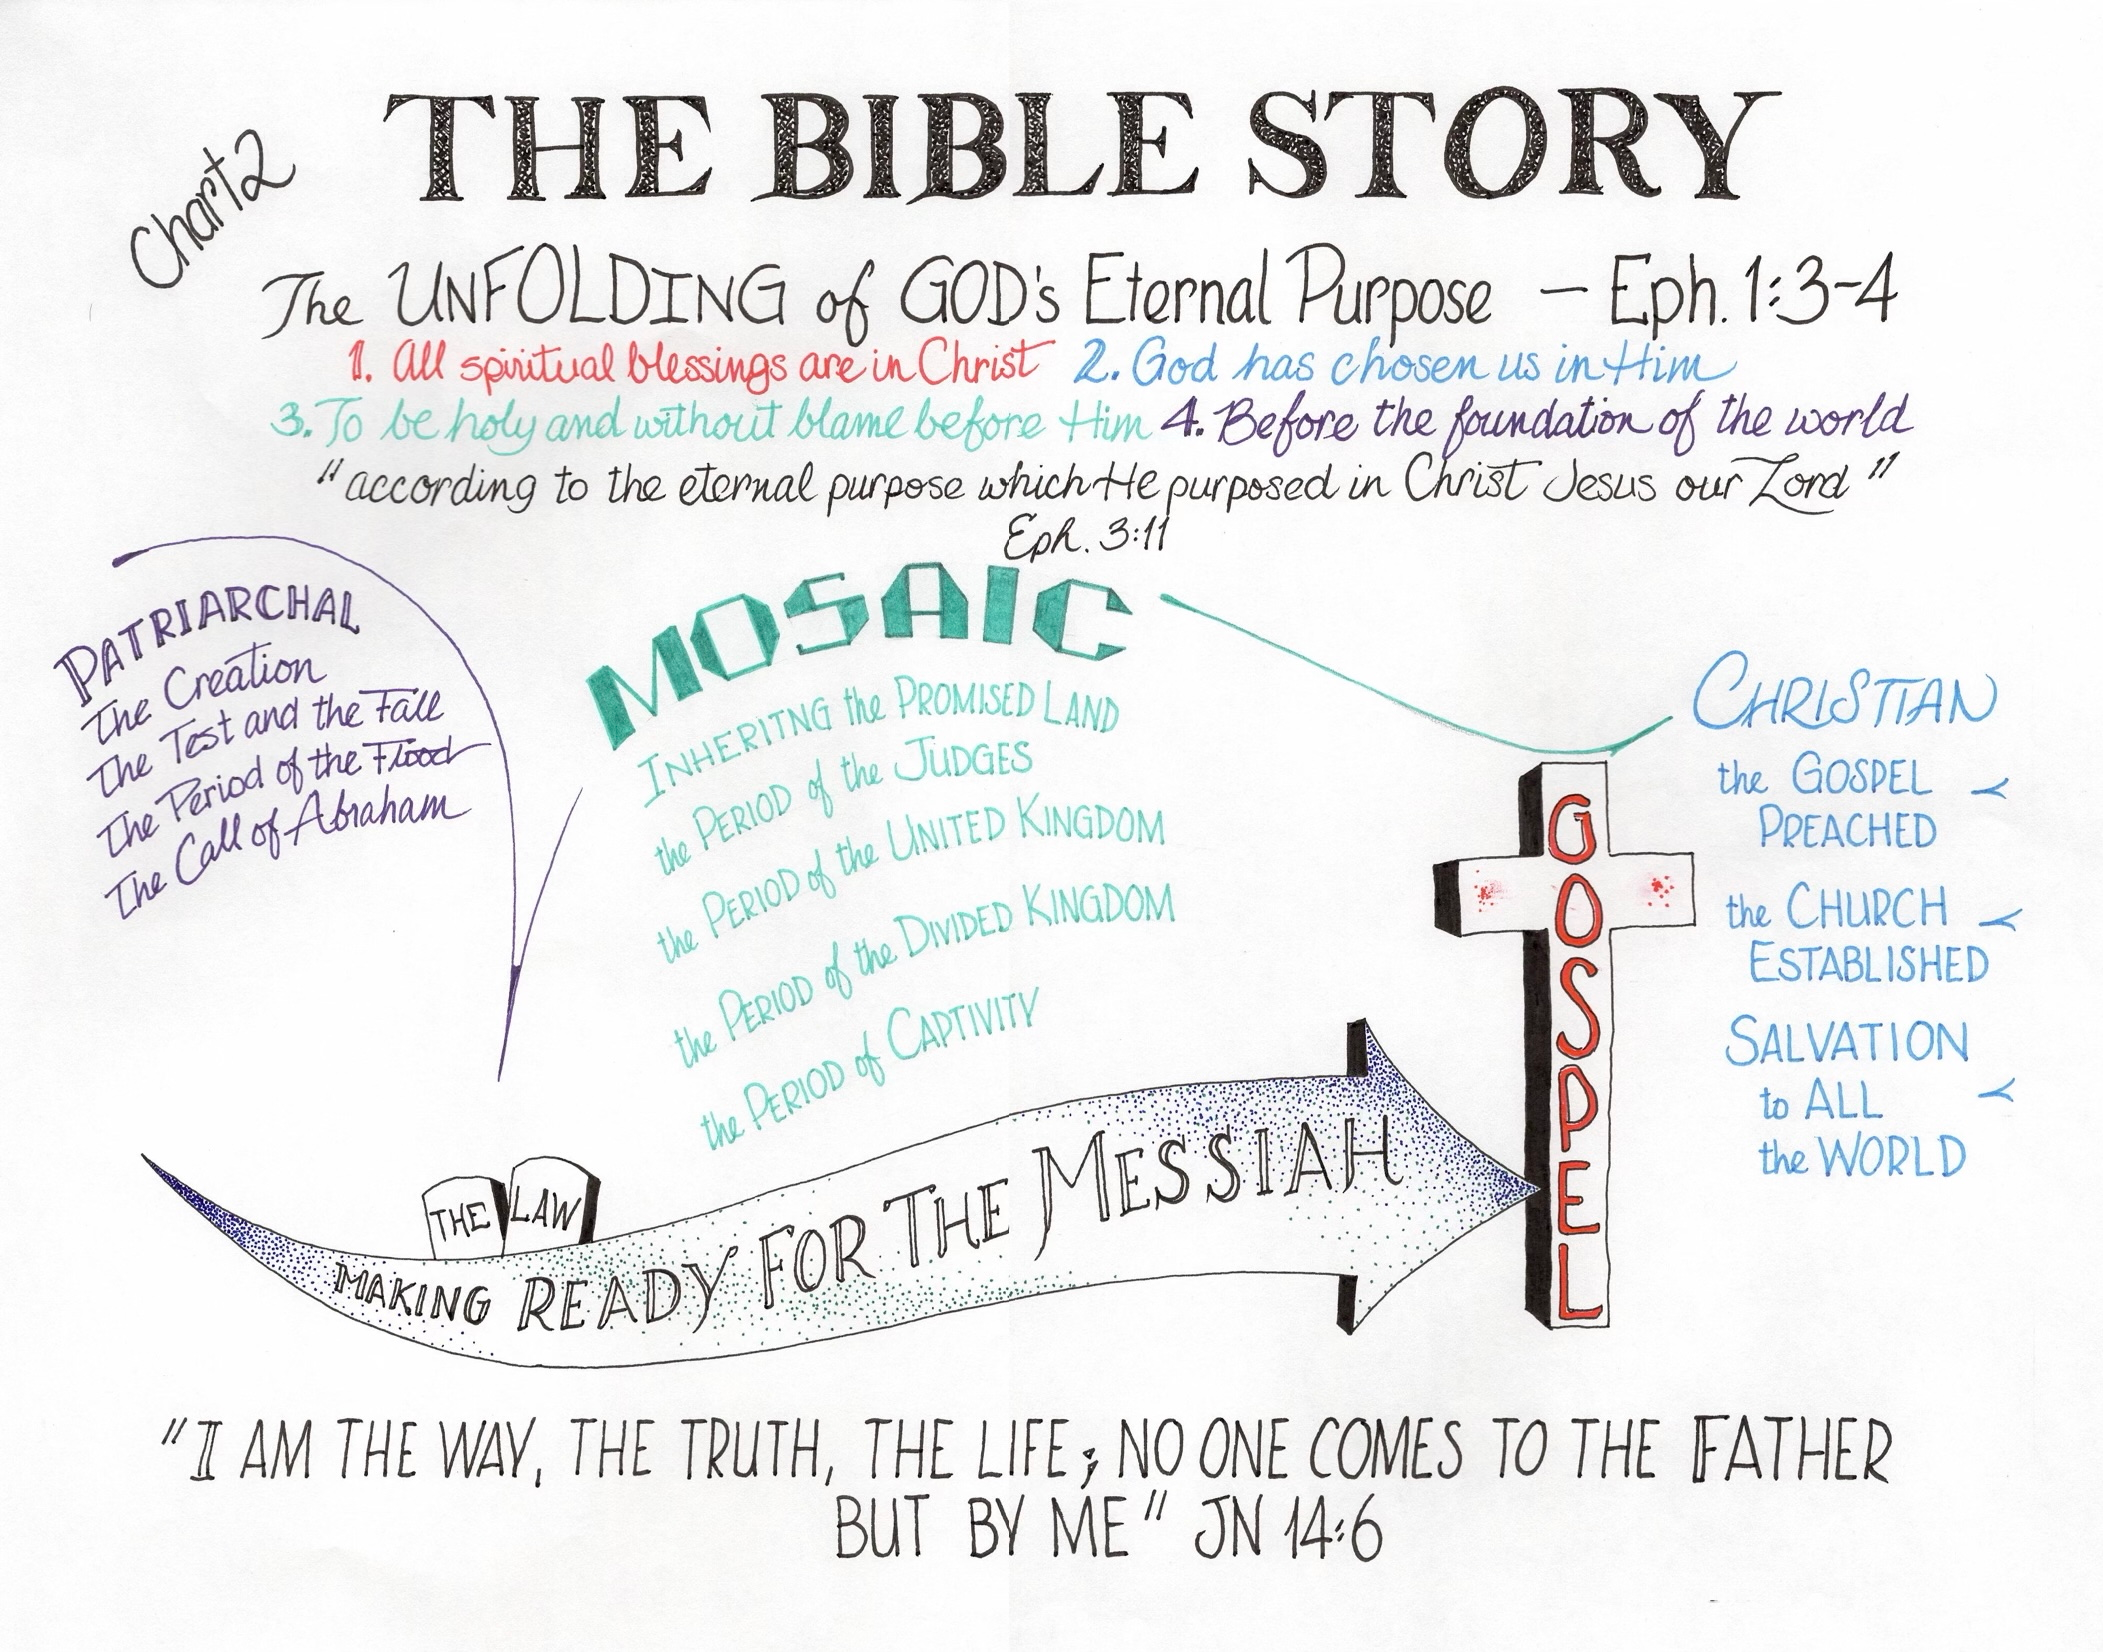 THE BIBLE STORY
Chart 2
The UNFOLDING of GOD's Eternal Purpose — Eph. 1:3-4
1. All spiritual blessings are in Christ 2. God has chosen us in Him
3. To be holy and without blame before Him 4. Before the foundation of the world
"according to the eternal purpose which He purposed in Christ Jesus our Lord"
Eph. 3:11
PATRIARCHAL
The Creation
The Test and the Fall
The Period of the Flood
The Call of Abraham
MOSAIC
INHERITNG the PROMISED LAND
the PERIOD of the JUDGES
the PERIOD of the UNITED KINGDOM
the PERIOD of the DIVIDED KINGDOM
the PERIOD of CAPTIVITY
CHRISTIAN
the GOSPEL
PREACHED
the CHURCH
ESTABLISHED
SALVATION
to ALL
the WORLD
GOSPEL
THE LAW
MAKING READY FOR THE MESSIAH
"I AM THE WAY, THE TRUTH, THE LIFE; NO ONE COMES TO THE FATHER
BUT BY ME" JN 14:6